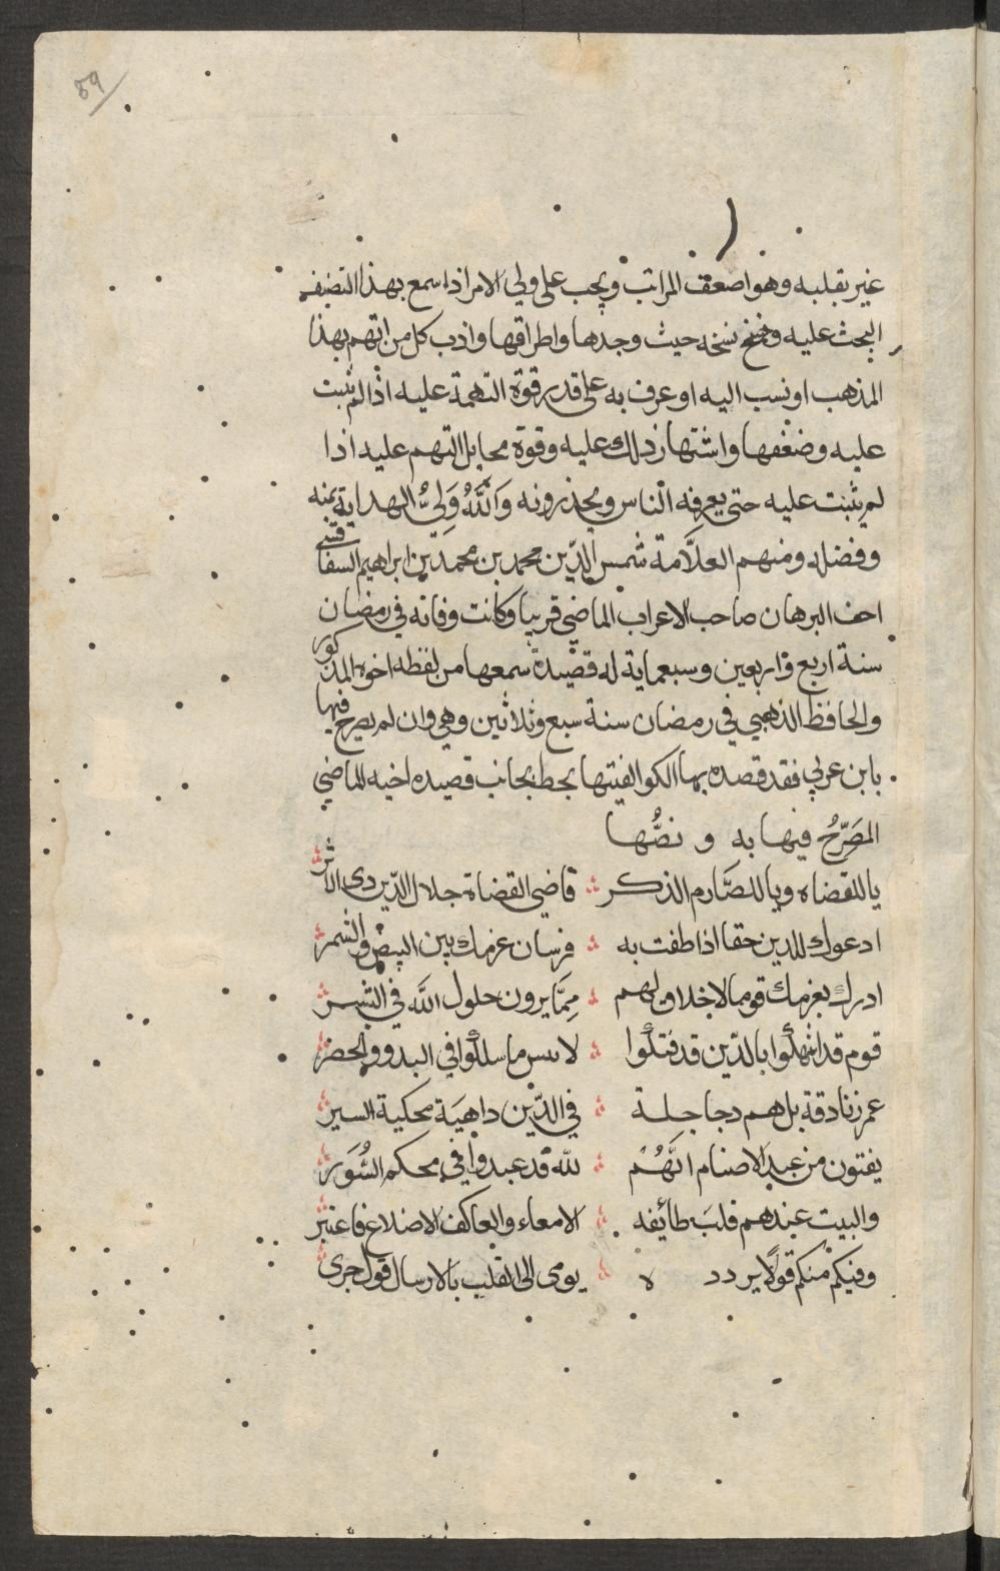 ٥٩
غير بقلبه وهو اضعف المراتب ويجب على ولي الامر اذا سمع بهذا التصنيف
البحث عليه وجمع نسخه حيث وجدها واحراقها وادب كل من اتهم بهذا
المذهب او نسب اليه او عرف به على قدر قوة التهمة عليه اذا لم يثبت
عليه وضعفها واشتهار ذلك عليه وقوة مخايل التهم عليه اذا
لم يثبت عليه حتى يعرفه الناس ويحذرونه وَاللَّهُ وَلِيُّ الهداية بمنه
وفضله ومنهم العلَّامة شمس الدّين محمد بن محمد بن ابراهيم السفاقسي
اخو البرهان صاحب الاعراب الماضي قريبا وكانت وفاته في رمضان
سنة اربع واربعين وسبعماية له قصيدة سمعها من لفظه اخوه المذكور
والحافظ الذهبي في رمضان سنة سبع وثلاثين وهي وان لم يصرح فيها
بابن عربي فقد قصده بها الكوا الفيتها بخط بجانب قصيده اخيه الماضي
المصَرّحُ فيها به و نصُّها
ياللقضاه وياللصَّارم الذكر قاضي القضاة جلال الدّين ذى الاثر
ادعوك للدين حقا اذا طفت به فرسان عزمك بين البيض والسمر
ادرك بعزمك قوما لاخلاق لهم مِمَّا يرون حلول اللَّه في البشر
قوم قد انتهكوا بالدّين قد فتكوا لابيس ما سلكوا في البدو والحضر
عمر زنادقة بل هم دجاجلة في الدّين داهيَة محكية السير
يفتون من عبد الاصنام انَّهُم للّه قد عبدوا في محكم السُّوَر
والبيت عندهم قلبَ طائفه الامعاء والعاكف الاضلاع فاعتبر
وفيكم منكم قولًا يردد ه يومى الى القلب بالارسال قول جرى